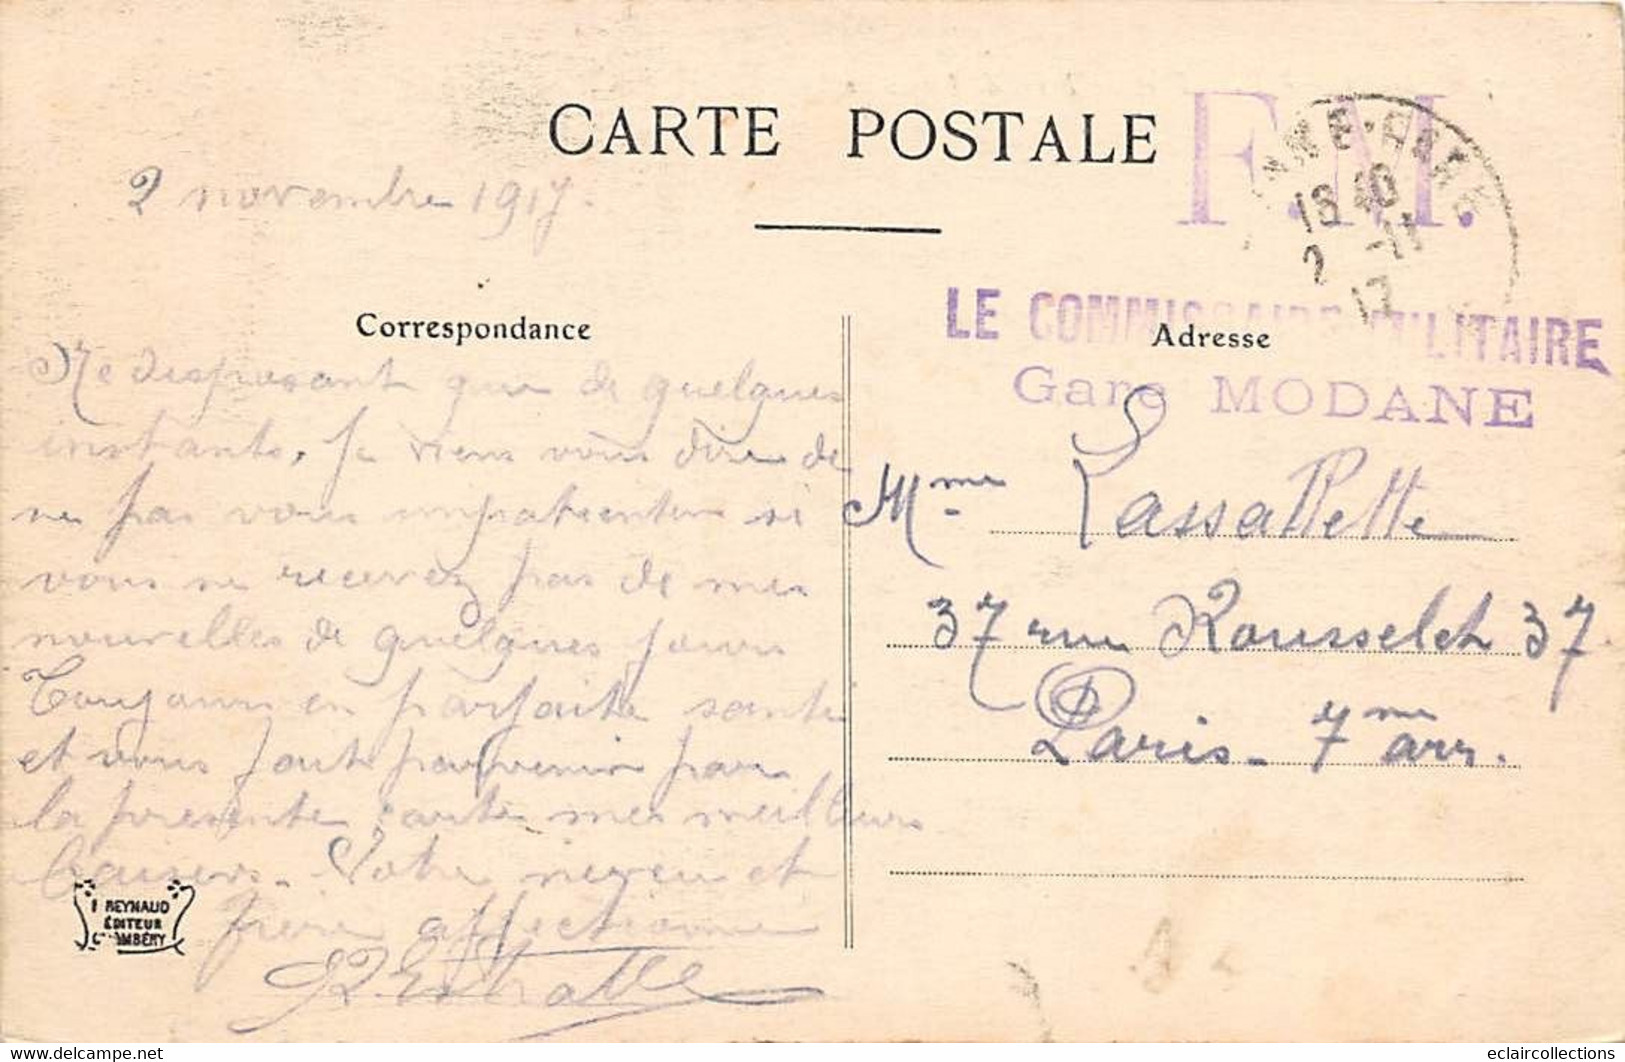 CARTE POSTALE
F.M.
18 40
2 -11
17
2 novembre 1917.
Correspondance
Ne disposant que de quelques
instants, je viens vous dire de
ne pas vous impatienter si
vous ne recevez pas de mes
nouvelles de quelques jours
Toujours en parfaite santé
et vous fait parvenir par
la présente carte mes meilleurs
baisers. Votre neveu et
frère affectionné
LE COMMISSAIRE MILITAIRE
Adresse
Gare MODANE
Mme Lassallette
37 rue Rousselet 37
Paris - 7me arr.
REYNAUD
ÉDITEUR
CHAMBÉRY
www.delcampe.net
eclaircollections